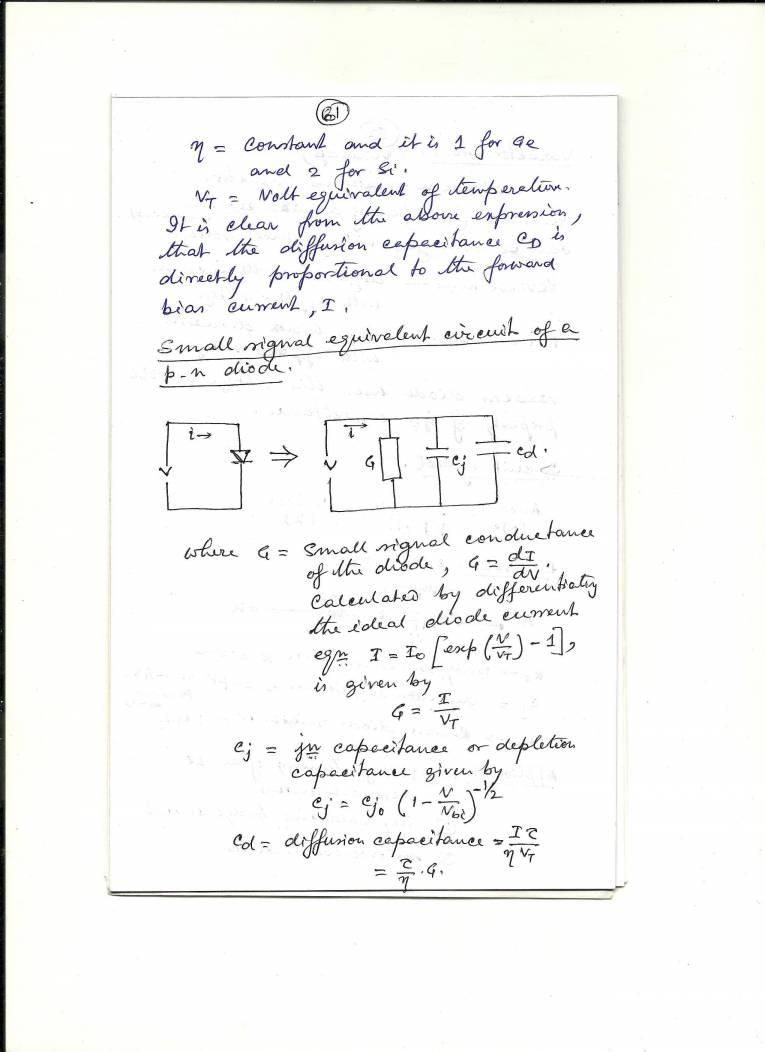 61
η = Constant and it is 1 for Ge
and 2 for Si.
V_T = Volt equivalent of temperature.
It is clear from the above expression,
that the diffusion capacitance C_D is
directly proportional to the forward
bias current, I.
Small signal equivalent circuit of a
p-n diode.
i→ ⇒ i G Cj Cd.
V V
where G = Small signal conductance
of the diode, G = dI/dV.
Calculated by differentiating
the ideal diode current
eqn I = I₀ [exp (V/V_T) - 1],
is given by
G = I/V_T
Cj = jn capacitance or depletion
capacitance given by
Cj = Cj₀ (1 - V/V_bi)^-1/2
Cd = diffusion capacitance = Iτ/ηV_T
= τ/η . G.